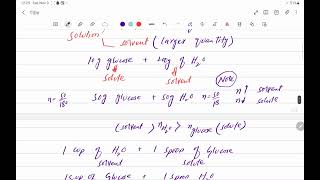 Title
solution
solvent (larger quantity)
10g glucose + 20g of H₂O
solute solvent
Note
n = 50/180 50g glucose + 50g H₂O n = 50/18 n↑ solvent
n↓ solute
(solvent) nH₂O > nglucose (solute)
1 cup of H₂O + 1 spoon of Glucose
solvent solute
1 cup of Glucose + 1 spoon H₂O